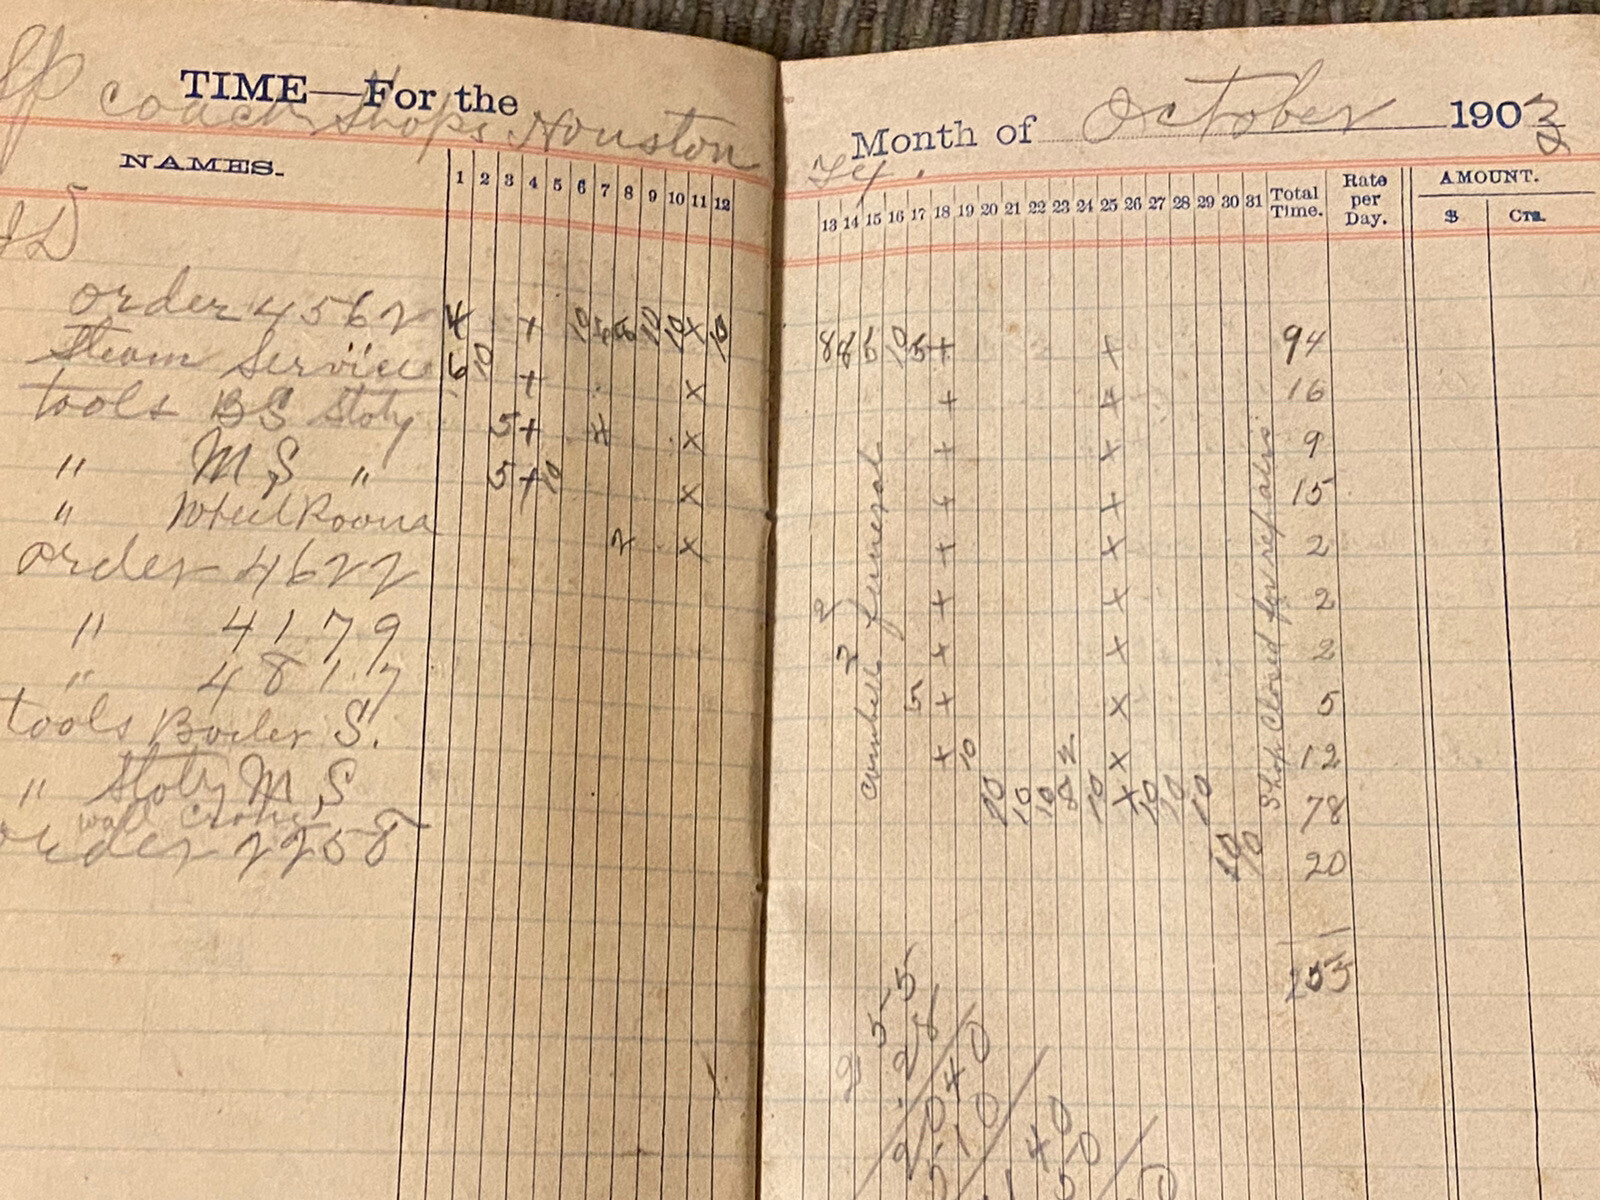 TIME—For the
SP coach shops Houston
NAMES.
1 2 3 4 5 6 7 8 9 10 11 12
order 4562 4 + 10 6 6 10 10 x 10
Steam Service 6 10 + x
tools BS Stoty 5 + 4 x
" M S " 5 + 10 x
" Wheel Room 2 x
order 4622
" 4179
" 4817
tools Boiler S.
" Stoty M S
wall
order 2258
Month of October 1903
Tx.
13 14 15 16 17 18 19 20 21 22 23 24 25 26 27 28 29 30 31 Total Time. Rate per Day. AMOUNT. $ Cts.
8 8 5 10 5 + x 94
+ x 16
+ x 9
+ x 15
+ x 2
2 + x 2
2 + x 2
5 + x 5
+ 10 2 x 12
10 10 10 8 10 x 10 10 10 78
10 10 20
255
funeral
Shop Closed for repairs
2 5-5
.28
2040
510
40